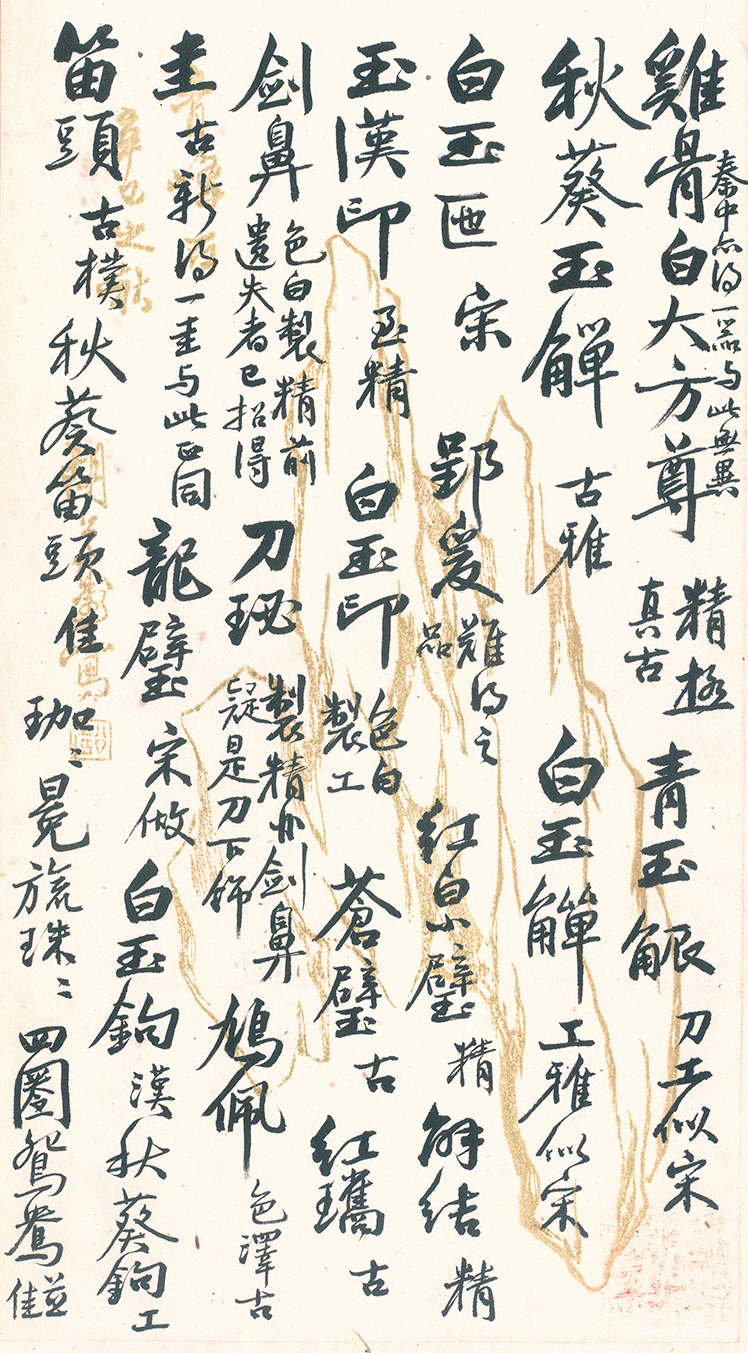 雞骨白大方尊 秦中亦得一器与此無異 精極真古 青玉觶 刀工似宋
秋葵玉觶 古雅 白玉觶 工雅似宋
白玉匜 宋 郢爰 難得之品 紅白小璧 精 解結 精
玉漢印 至精 白玉印 色白製工 蒼璧 古 紅瓗 古
劍鼻 色白製精前遺失者已招得 刀珌 製精出劍鼻疑是刀下飾 鳩佩 色澤古
圭 古新得一圭与此正同 龍璧 宋倣 白玉鉤 漢 秋葵鉤 工
笛頭 古樸 秋葵笛頭 佳 珈珈 冕旒珠珠 四圈鴛鴦 並佳
辛巳之秋